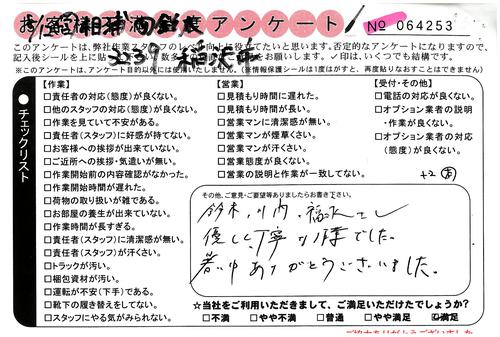 お客様 満 度アンケート
No 064253
このアンケートは、弊社作業スタッフのレベル向上に役立てたいと思います。否定的なアンケートになりますので、
記入後シールを上に貼
お願いします。✓印は、いくつでも結構です。
※このアンケートは、アンケート目的以外には使用いたしません。(※情報保護シールは1度はがすと、再度貼りなおすことはできません)
チェックリスト
【作業】
□責任者の対応(態度)が良くない。
□他のスタッフの対応(態度)が良くない。
□作業を見ていて不安がある。
□責任者(スタッフ)に好感が持てない。
□お客様への挨拶が出来ていない。
□ご近所への挨拶・気遣いが無い。
□作業開始前の内容確認がなかった。
□作業開始時間が遅れた。
□荷物の取り扱いが雑である。
□お部屋の養生が出来ていない。
□作業時間が長すぎる。
□責任者(スタッフ)に清潔感が無い。
□責任者(スタッフ)が汗くさい。
□トラックが汚い。
□梱包資材が汚い。
□運転が不安(下手)である。
□靴下の履き替えをしてない。
□スタッフにやる気がみられない。
【営業】
□見積もり時間に遅れた。
□見積もり時間が長い。
□営業マンに清潔感が無い。
□営業マンが煙草くさい。
□営業マンが汗くさい。
□営業態度が良くない。
□営業の説明と作業が一致してない。
【受付・その他】
□電話の対応が良くない。
□オプション業者の説明
・作業が良くない。
□オプション業者の対応
(態度)が良くない。
その他、ご意見・ご要望等ありましたらお書き下さい。
優しく丁寧な 様でした。
暑い中ありがとうございました。
☆当社をご利用いただきまして、ご満足いただけたでしょうか?
□不満 □やや不満 □普通 □やや満足 ☑満足
ご協力ありがとうございました